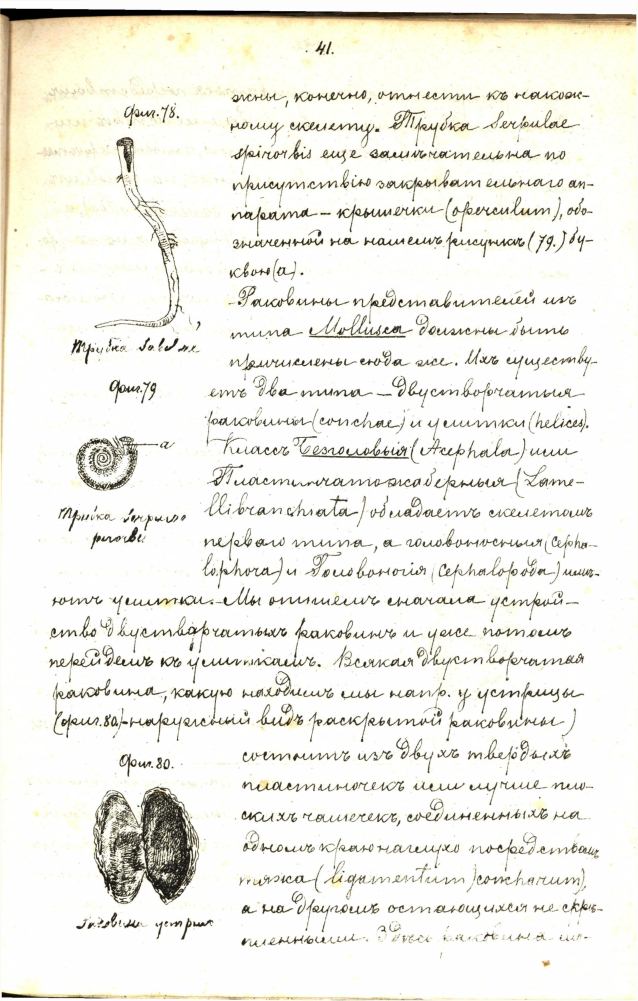 41.
жны, конечно, отнести къ накож-
ному скелету. Трубка Serpulae
spirorbis еще замѣчательна по
присутствію закрывательнаго ап-
парата – крышечки (operculum), обо-
значенной на нашемъ рисункѣ (79.) бу-
квою (а).
Раковины представителей изъ
типа Mollusca должны быть
причислены сюда же. Ихъ существу-
етъ два типа – двустворчатыя
раковины (conchae) и улитки (helices).
Классъ Безголовыя (Acephala) или
Пластинчатожаберныя (Lame-
llibranchiata) обладаетъ скелетомъ
перваго типа, а головоносныя (Cepha-
lophora) и Головоногія (Cephalopoda) имѣ-
ютъ улитки. Мы опишемъ сначала устрой-
ство двустворчатыхъ раковинъ и уже потомъ
перейдемъ къ улиткамъ. Всякая двустворчатая
раковина, какую находимъ мы напр. у устрицы
(фиг. 80 – наружный видъ раскрытой раковины)
состоитъ изъ двухъ твердыхъ
пластиночекъ или лучше пло-
скихъ чашечекъ, соединенныхъ на
одномъ краю наглухо посредствомъ
тяжа (ligamentum concharum),
а на другомъ остающихся не скрѣ-
пленными. Здѣсь раковина
Фиг. 78.
Трубка Sabellae
Фиг. 79
a
Трубка Serpulae
Фиг. 80.
Раковина устриц